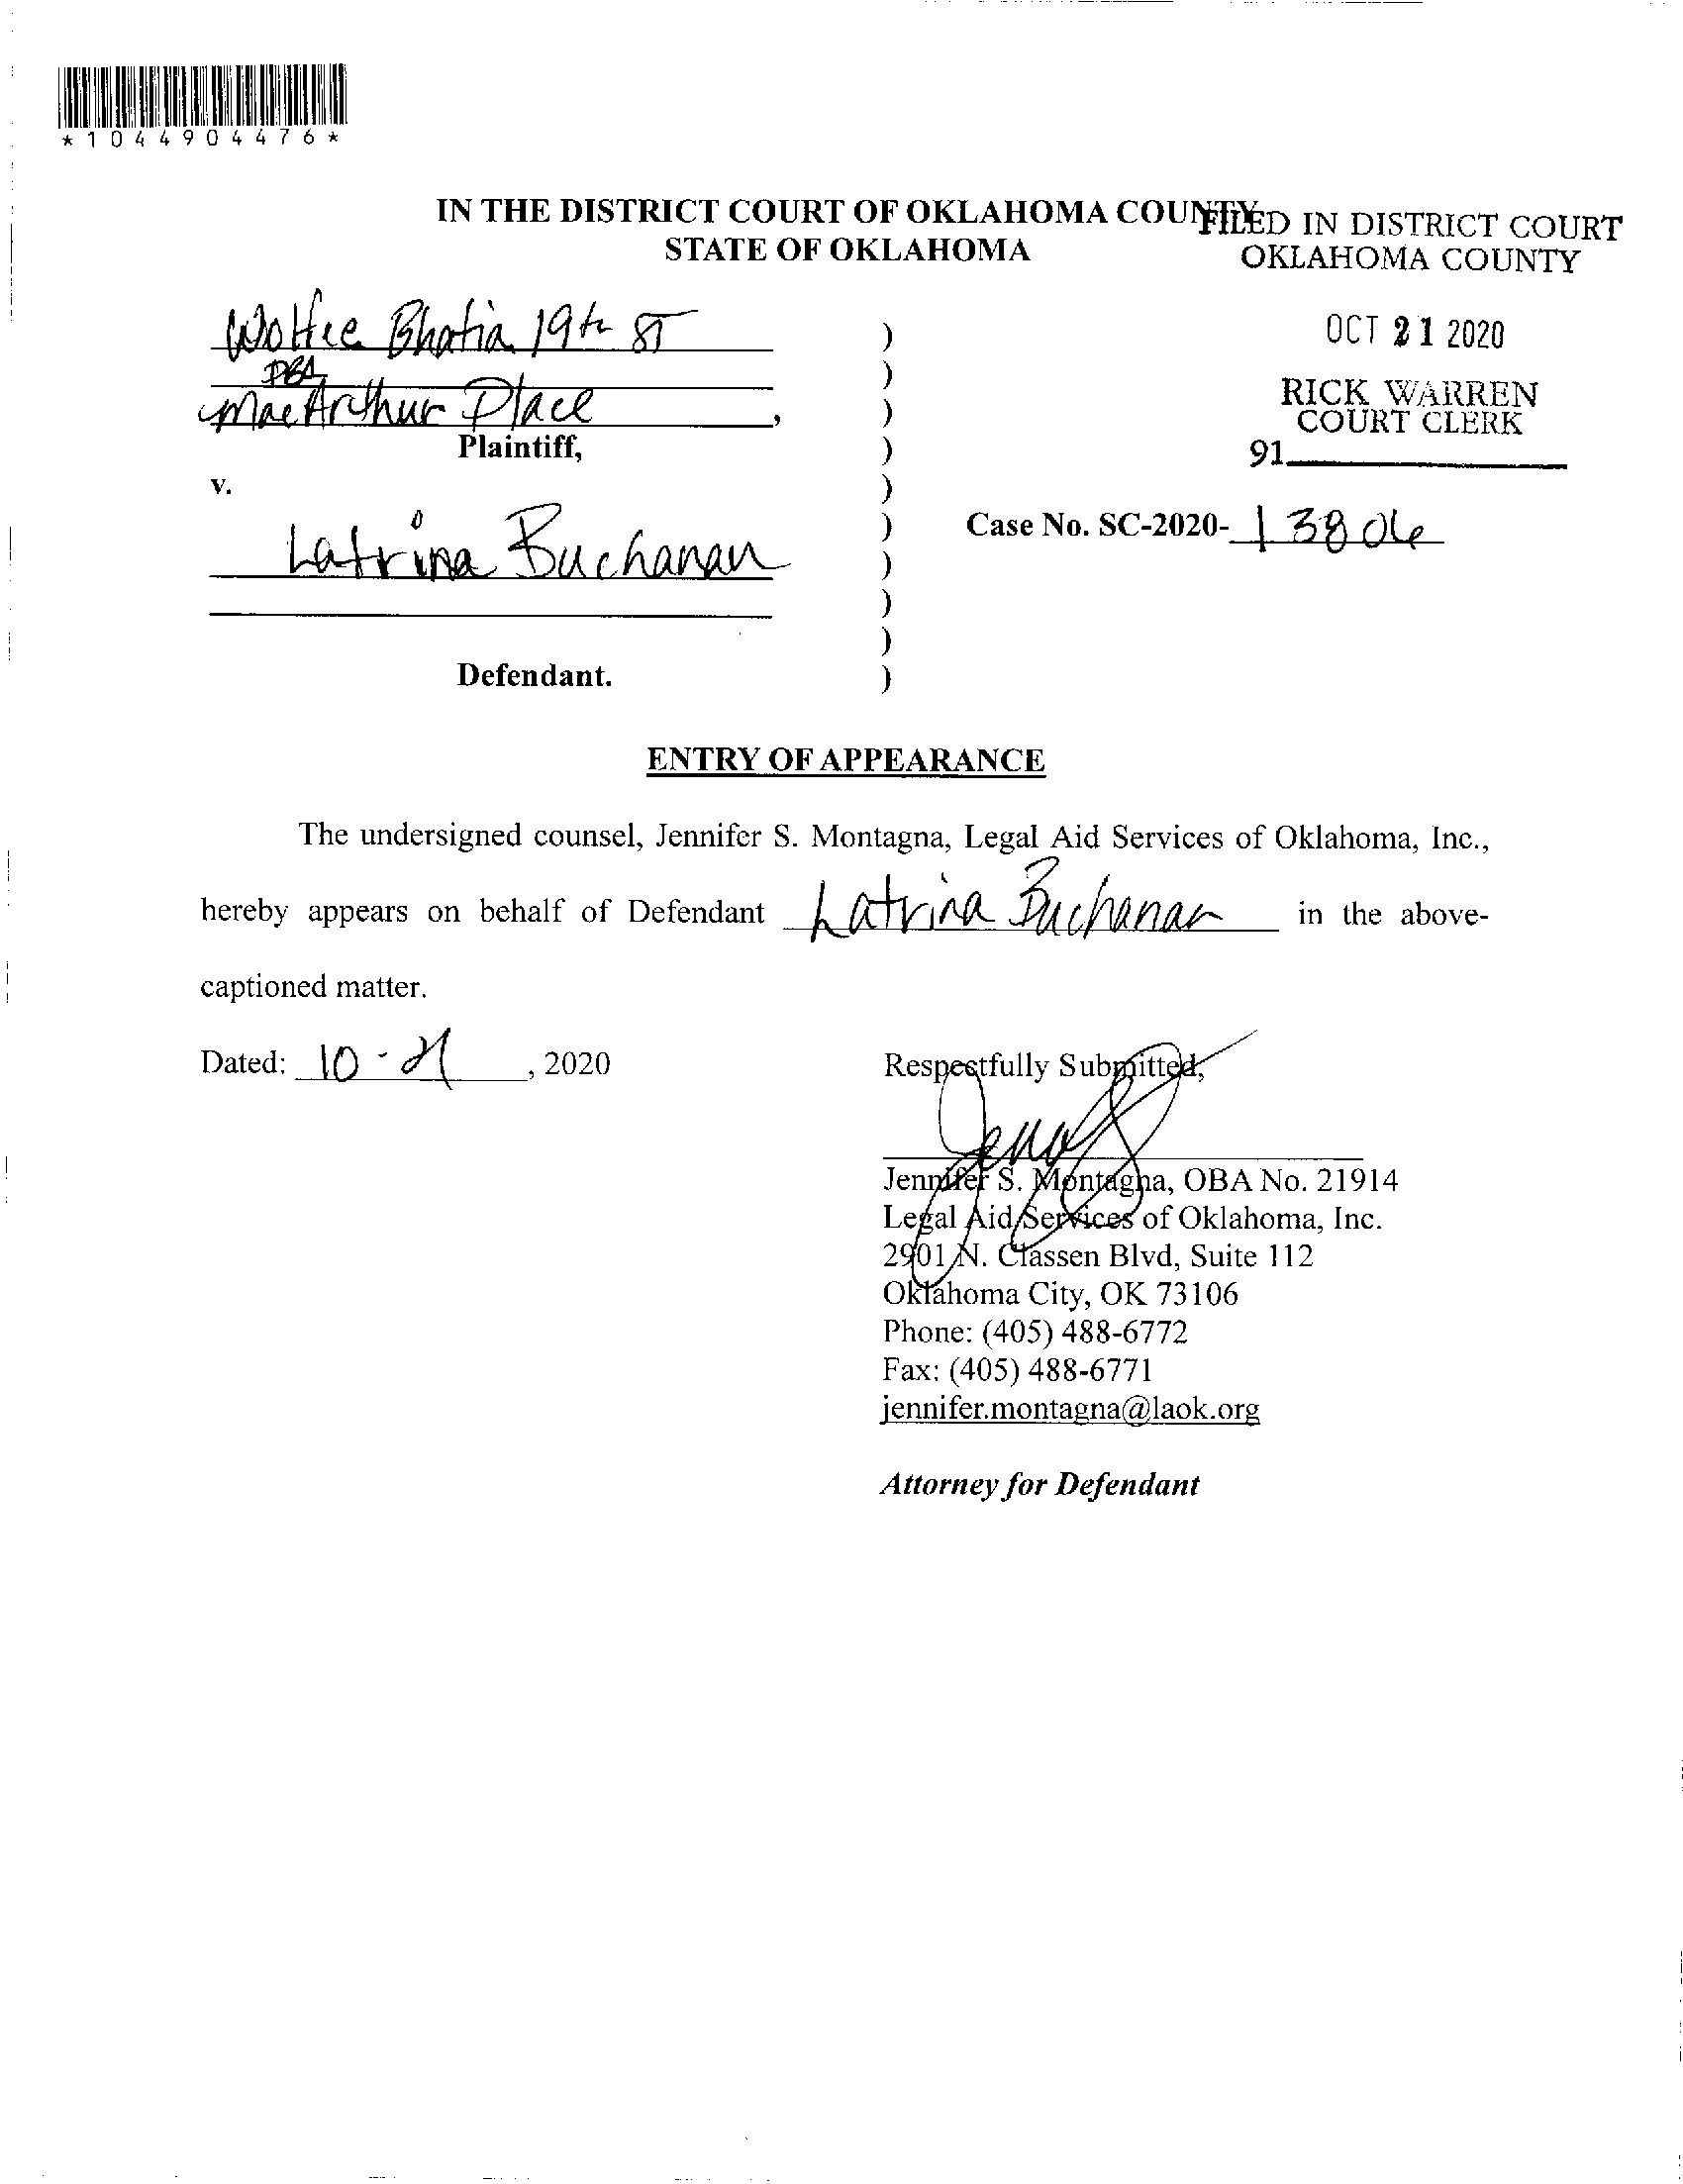 *1044904476*
IN THE DISTRICT COURT OF OKLAHOMA COUNTY
STATE OF OKLAHOMA
FILED IN DISTRICT COURT
OKLAHOMA COUNTY
OCT 21 2020
RICK WARREN
COURT CLERK
91
Bhatia 19th ST
DBA
MacArthur Place,
Plaintiff,
v.
Case No. SC-2020- 13806
Latrina Buchanan
Defendant.
ENTRY OF APPEARANCE
The undersigned counsel, Jennifer S. Montagna, Legal Aid Services of Oklahoma, Inc.,
hereby appears on behalf of Defendant Latrina Buchanan in the above-
captioned matter.
Dated: 10-21, 2020
Respectfully Submitted,
Jennifer S. Montagna, OBA No. 21914
Legal Aid Services of Oklahoma, Inc.
2901 N. Classen Blvd, Suite 112
Oklahoma City, OK 73106
Phone: (405) 488-6772
Fax: (405) 488-6771
jennifer.montagna@laok.org
Attorney for Defendant